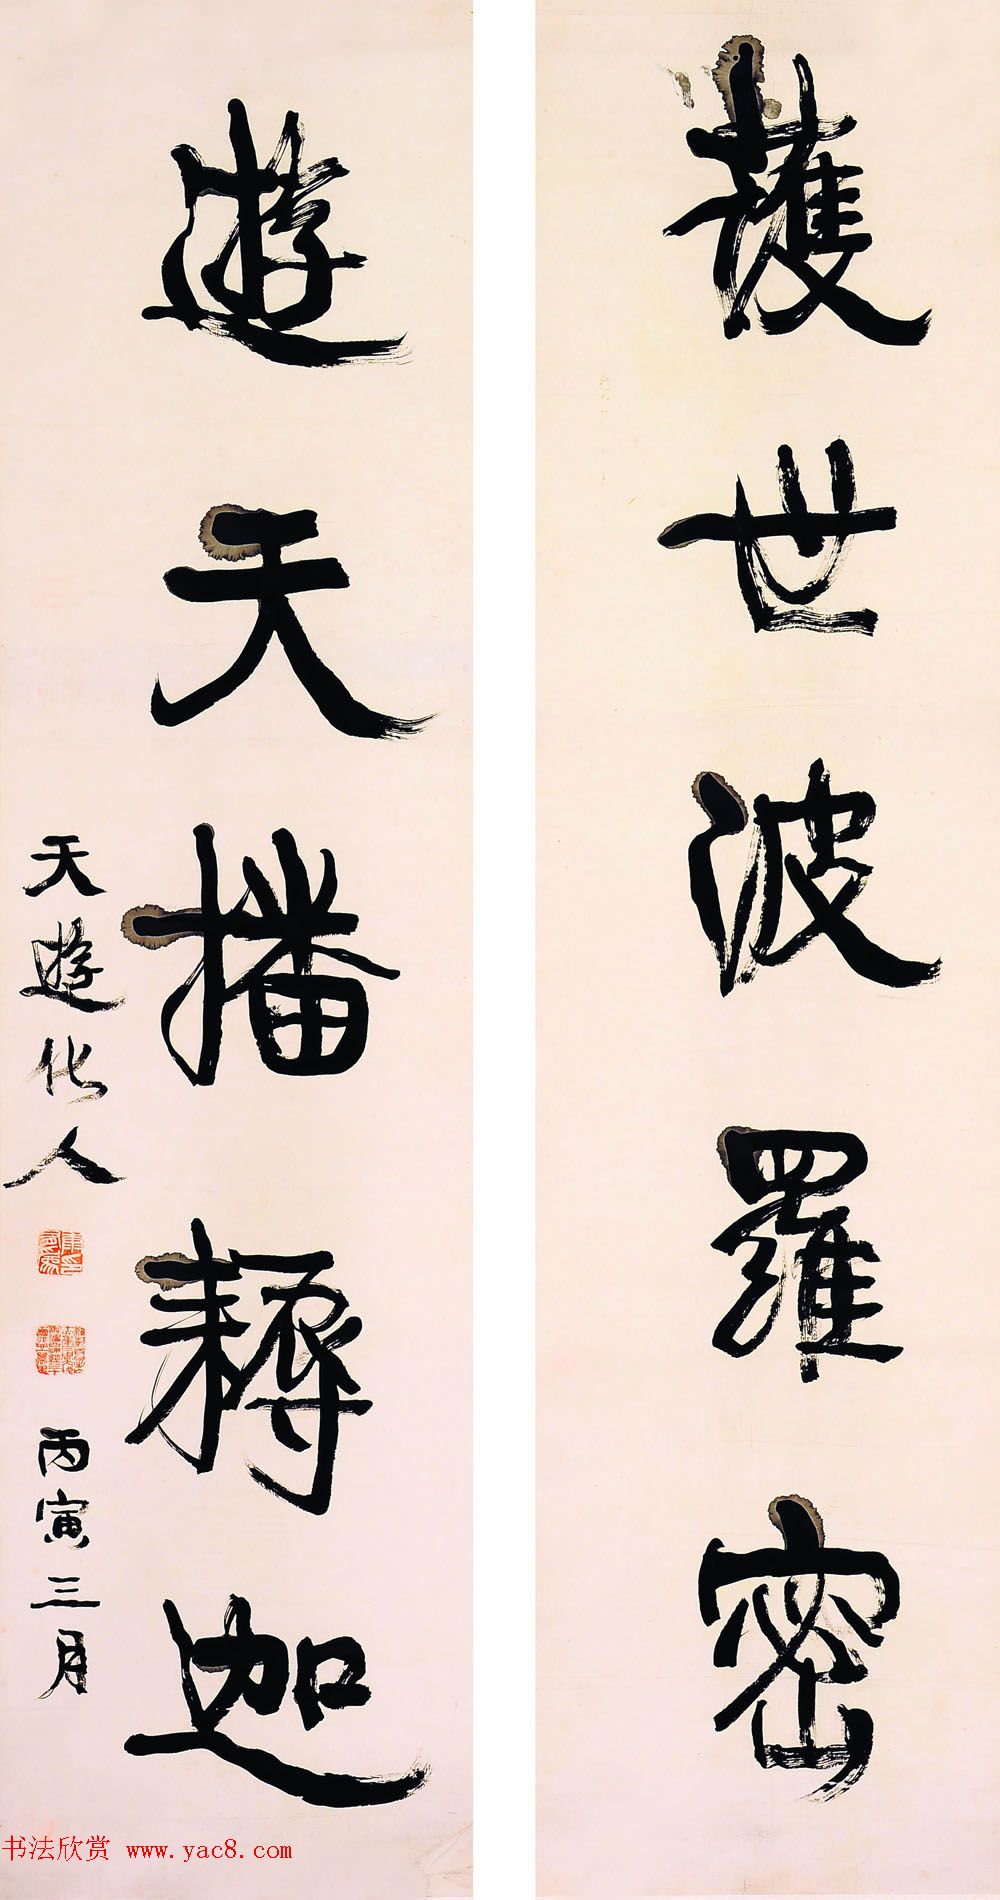 護世波羅密
遊天播耨迦
天遊化人
丙寅三月
书法欣赏 www.yac8.com